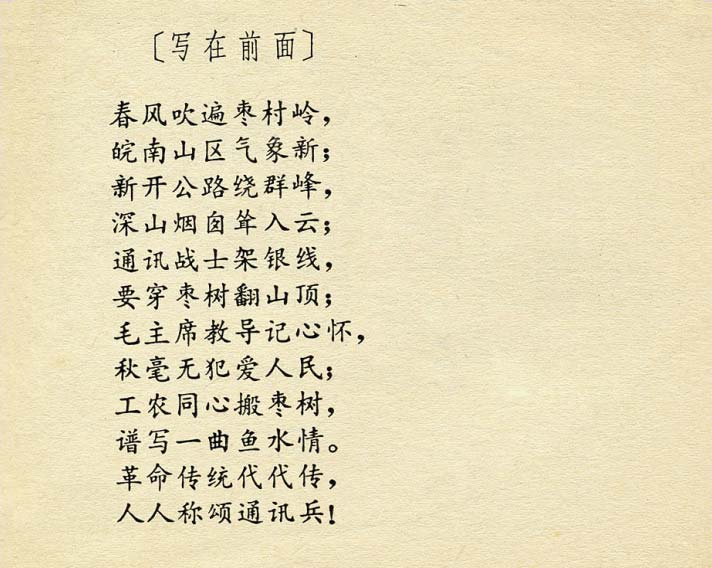 〔写在前面〕
春风吹遍枣村岭，
皖南山区气象新；
新开公路绕群峰，
深山烟囱耸入云；
通讯战士架银线，
要穿枣树翻山顶；
毛主席教导记心怀，
秋毫无犯爱人民；
工农同心搬枣树，
谱写一曲鱼水情。
革命传统代代传，
人人称颂通讯兵！